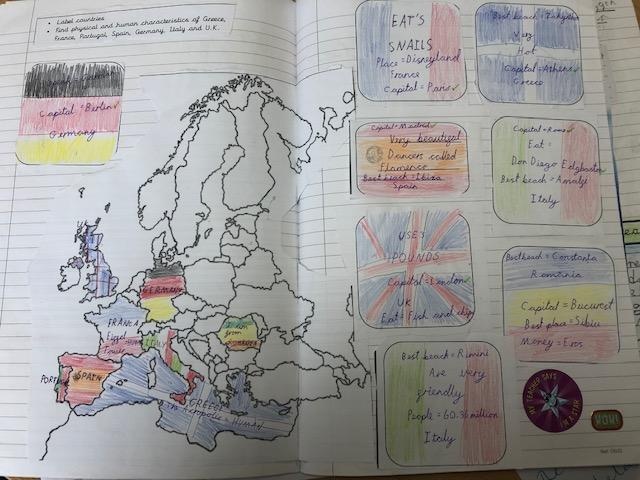 Label countries
Find physical and human characteristics of Greece,
France, Portugal, Spain, Germany, Italy and U.K.
Capital = Berlin
Germany
EAT'S
SNAILS
Place = Disneyland
France
Capital = Paris
Best beach =
Very
Hot
Capital = Athens
Greece
Capital = Madrid
Very beautiful
Dancers called
Flamence
Best beach = Ibiza
Spain
Capital = Rome
Eat =
Don Diego Edgbaston
Best beach = Amalfi
Italy
USES
POUNDS
Capital = London
UK
Eat = Fish and chips
Best beach = Constanta
Romania
Capital = Bucurest
Best place = Sibiu
Money = Eros
Best beach = Rimini
Are very
friendly
People = 60.36 million
Italy
GERMANY
FRANCE
Eiffel
Tower
ITALY
from
PORT
SPAIN
GREECE
Acropolis = HUMAN
MY TEACHER SAYS
I'M A STAR
WOW!